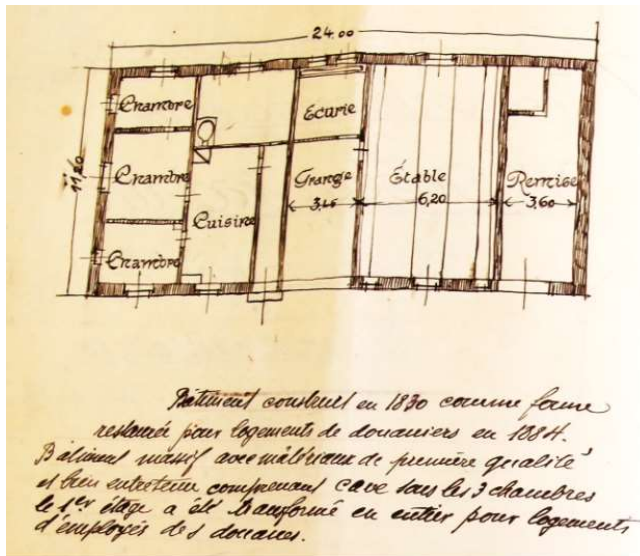 24.00
11,20
Chambre
Ecurie
Chambre
Grange
Étable
Remise
3,45
6,20
3,60
Cuisine
Chambre
Bâtiment construit en 1830 comme ferme
restaurée pour logements de douaniers en 1884.
Bâtiment massif avec matériaux de première qualité
et bien entretenu comprenant cave sous les 3 chambres
le 1er étage a été transformé en entier pour logements
d'employés des douanes.